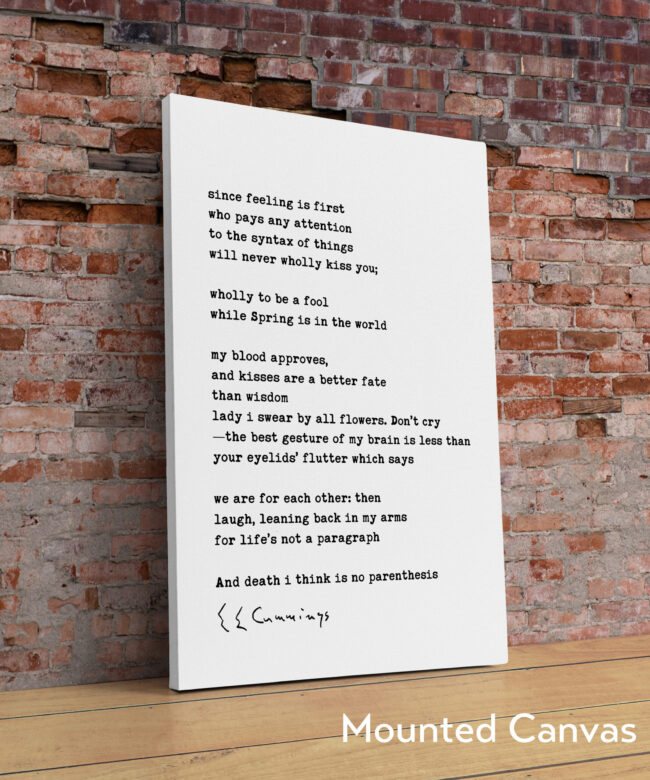 since feeling is first
who pays any attention
to the syntax of things
will never wholly kiss you;
wholly to be a fool
while Spring is in the world
my blood approves,
and kisses are a better fate
than wisdom
lady i swear by all flowers. Don't cry
—the best gesture of my brain is less than
your eyelids' flutter which says
we are for each other: then
laugh, leaning back in my arms
for life's not a paragraph
And death i think is no parenthesis
E E Cummings
Mounted Canvas